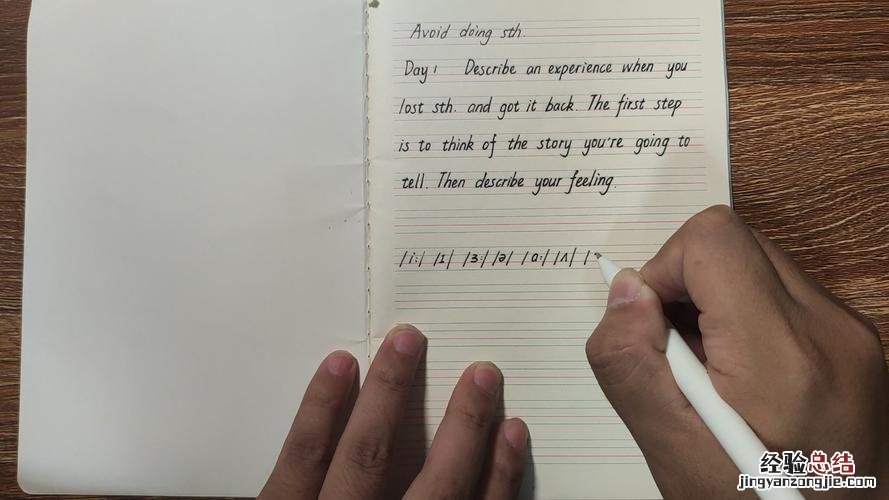 Avoid doing sth.
Day 1 Describe an experience when you
lost sth. and got it back. The first step
is to think of the story you're going to
tell. Then describe your feeling.
/i:/ /ɪ/ /ɜ:/ /ə/ /ɑ:/ /ʌ/ /
经验总结
jingyanzongjie.com